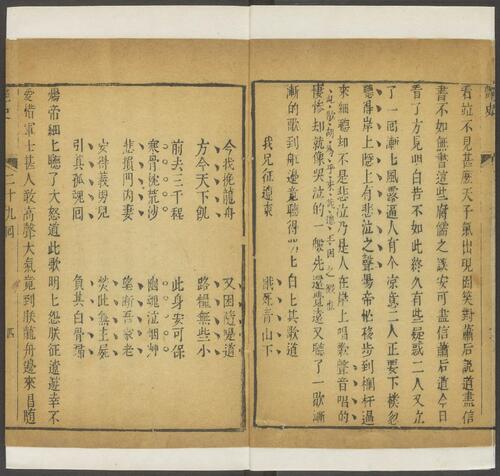 看竝不見甚麼天子氣出現因笑對蕭后說道盡信
書不如無書這些腐儒之談安可盡信蕭后道今日
看了方見明白若不如此終久有些疑惑二人又立
了一回漸乚風露逼人有个凉意二人正要下樓忽
聽得岸上隄上有悲泣之聲煬帝忙移步到欄杆邊
來細聽却不是悲泣乃是人在岸上唱歌聲音唱的
悽慘却就像哭泣的一般先還覺遠又聽了一歇漸
漸的歌到船邊竟聽得明乚白乚其歌道
我兄征遼東 餓死青山下
今我挽龍舟 又困隋堤道
方今天下飢 路糧無些小
前去三千程 此身安可保
寒骨枕荒沙 幽魂泣烟草
悲損門內妻 望斷吾家老
安得義男兒 焚此無主屍
引其孤魂回 負其白骨歸
煬帝細乚聽了大怒道此歌明乚怨朕征遼巡幸不
愛惜軍士甚人敢高聲大氣竟到朕龍舟邊來唱隨
二十九回
四